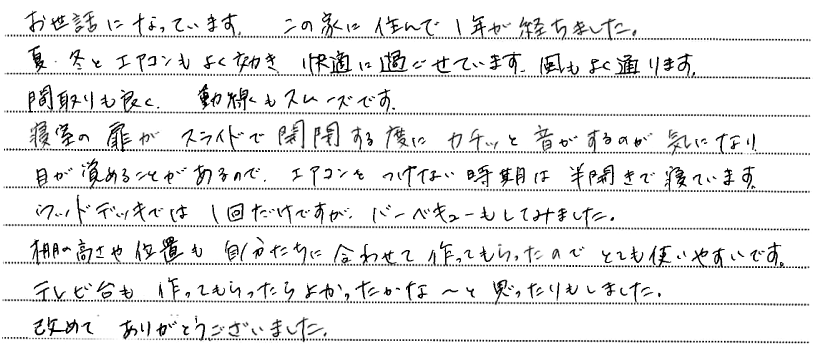 お世話になっています。 この家に住んで1年が経ちました。
夏・冬とエアコンもよく効き 快適に過ごせています。風もよく通ります。
間取りも良く、 動線もスムーズです。
寝室の扉が スライドで開閉する度に カチッと音がするのが気になり
目が覚めることがあるので、 エアコンをつけない時期は半開きで寝ています。
ウッドデッキでは 1回だけですが、バーベキューもしてみました。
棚の高さや位置も 自分たちに合わせて作ってもらったので とても使いやすいです。
テレビ台も 作ってもらったらよかったかな〜と思ったりもしました。
改めて ありがとうございました。